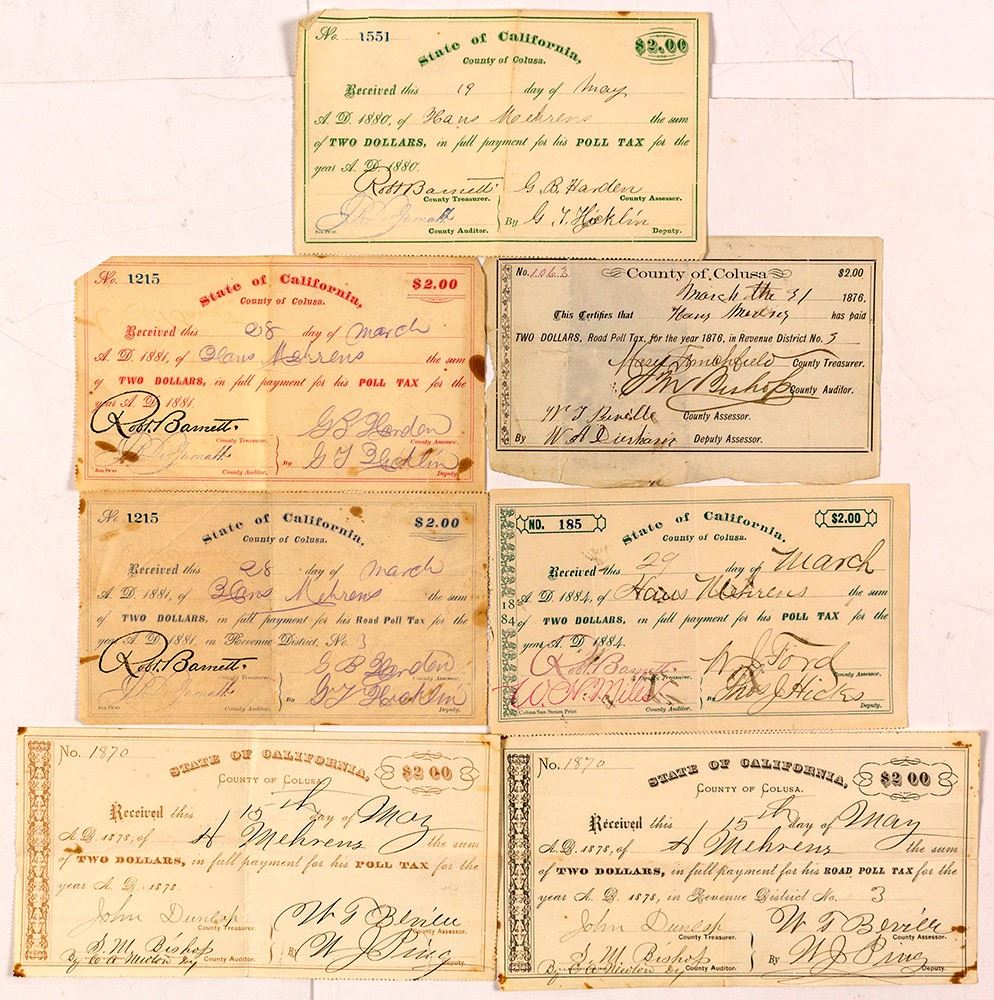 No. 1551
State of California,
$2.00
County of Colusa.
Received this 19 day of May
A. D. 1880, of Hans Mehrens the sum
of TWO DOLLARS, in full payment for his POLL TAX for the
year A. D. 1880.
Robt Barnett G. B. Harden
County Treasurer. County Assessor.
By G. T. Hicklin
County Auditor. Deputy.
No. 1215
State of California,
$2.00
County of Colusa.
Received this 28 day of March
A. D. 1881, of Hans Mehrens the sum
of TWO DOLLARS, in full payment for his POLL TAX for the
year A. D. 1881.
Robt. Barnett. G B Harden
County Treasurer. County Assessor.
By G T Hicklin
County Auditor. Deputy.
No. 1063 County of Colusa $2.00
March the 31 1876,
This Certifies that Hans has paid
TWO DOLLARS, Road Poll Tax, for the year 1876, in Revenue District No. 5
County Treasurer.
Bishop County Auditor.
W T Beville County Assessor.
By W A Deputy Assessor.
No 1215
State of California,
$2.00
County of Colusa.
Received this 28 day of March
A. D. 1881, of Hans Mehrens the sum
of TWO DOLLARS, in full payment for his Road Poll Tax for the
year A. D. 1881 in Revenue District, No. 3
Robt. Barnett. G B Harden
County Treasurer. County Assessor.
By G T Hicklin
County Auditor. Deputy.
NO. 185
State of California,
$2.00
County of Colusa.
Received this 29 day of March
A. D. 1884, of Hans Mehrens the sum
of TWO DOLLARS, in full payment for his POLL TAX for the
year A. D. 1884.
1884
Robt Barnett W J Ford
County Treasurer. County Assessor.
W. H. Miles By Thos J Hicks
Colusa Sun Steam Print County Auditor. Deputy.
No. 1870
STATE OF CALIFORNIA,
$2 00
COUNTY OF COLUSA
Received this 15th day of May
A. D. 1878, of H Mehrens the sum
of TWO DOLLARS, in full payment for his POLL TAX for the
year A. D. 1878
John Dunlap W T Beville
County Treasurer. County Assessor.
S. M. Bishop By W J Ping
By C A Newton Dy County Auditor. Deputy.
No. 1870
STATE OF CALIFORNIA,
$2 00
COUNTY OF COLUSA.
Received this 15th day of May
A. D. 1878, of H Mehrens the sum
of TWO DOLLARS, in full payment for his ROAD POLL TAX for the
year A. D. 1878, in Revenue District No. 3
John Dunlap W T Beville
County Treasurer. County Assessor.
S. M. Bishop By W J Ping
By C A Newton Dy County Auditor. Deputy.